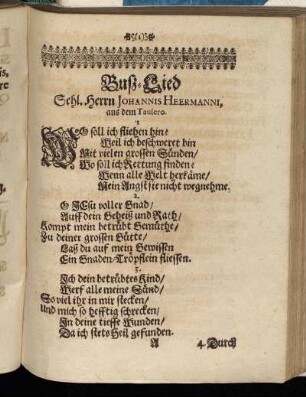 Buß-Lied
Sehl. Herrn JOHANNIS HEERMANNI,
aus dem Taulero.
1
WO soll ich fliehen hin/
Weil ich beschweret bin
Mit vielen grossen Sünden/
Wo soll ich Rettung finden/
Wenn alle Welt herkäme/
Mein Angst sie nicht wegnehme.
2.
O JEsu voller Gnad/
Auff dein Geheiß und Rath/
Kompt mein betrübt Gemüthe/
Zu deiner grossen Gütte/
Laß du auf mein Gewissen
Ein Gnaden-Tröpflein fliessen.
3.
Ich dein betrübtes Kind/
Werf alle meine Sünd/
So viel ihr in mir stecken/
Und mich so hefftig schrecken/
In deine tieffe Wunden/
Da ich stets Heil gefunden.
A 4. Durch